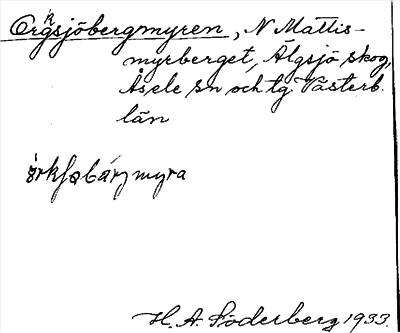 Örgsjöbergmyren, N Mattis-
myrberget, Älgsjö skog,
Åsele sn och tg. Västerb.
län
myra
H. A. Söderberg 1933.